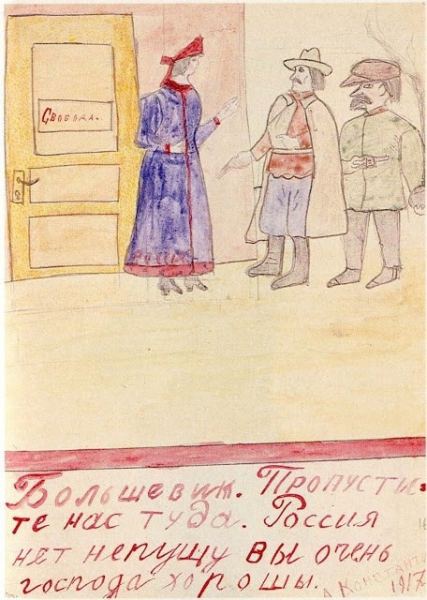 Свобода.
Большевик. Пропусти-
те нас туда. Россия
нет непущу вы очень
господа хорошы.
1917